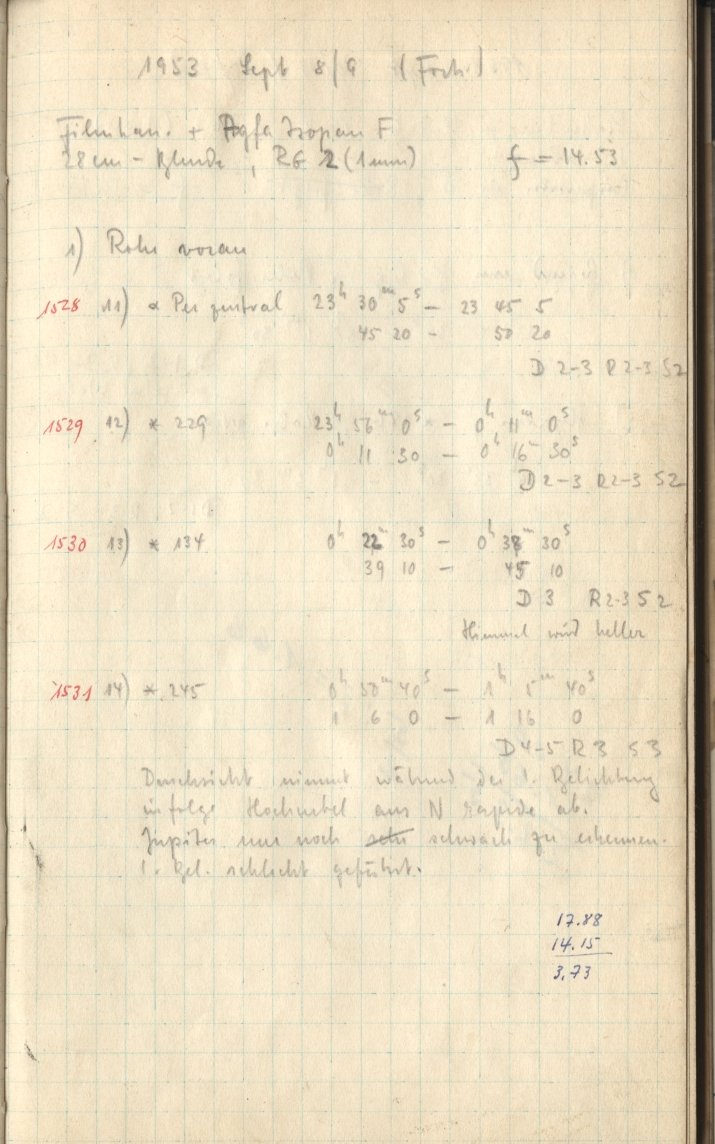 1953 Sept 8/9 (Forts.)
Filmkam. + Agfa Isopan F
28 cm - Blende, RG 2 (1mm) f = 14.53
1) Rohr voran
1528 11) α Per zentral 23h 30m 5s - 23 45 5
45 20 - 50 20
D 2-3 R 2-3 S2
1529 12) * 229 23h 56m 0s - 0h 11m 0s
0h 11 30 - 0h 16m 30s
D 2-3 R 2-3 S2
1530 13) * 134 0h 22m 30s - 0h 38m 30s
39 10 - 45 10
D 3 R 2-3 S 2
Himmel wird heller
1531 14) * 245 0h 50m 40s - 1h 5m 40s
1 6 0 - 1 16 0
D 4-5 R 3 S 3
Durchsicht nimmt während der 1. Belichtung
infolge Hochnebel aus N rapide ab.
Jupiter nur noch sehr schwach zu erkennen.
1. Bel. schlecht geführt.
17.88
14.15
3.73